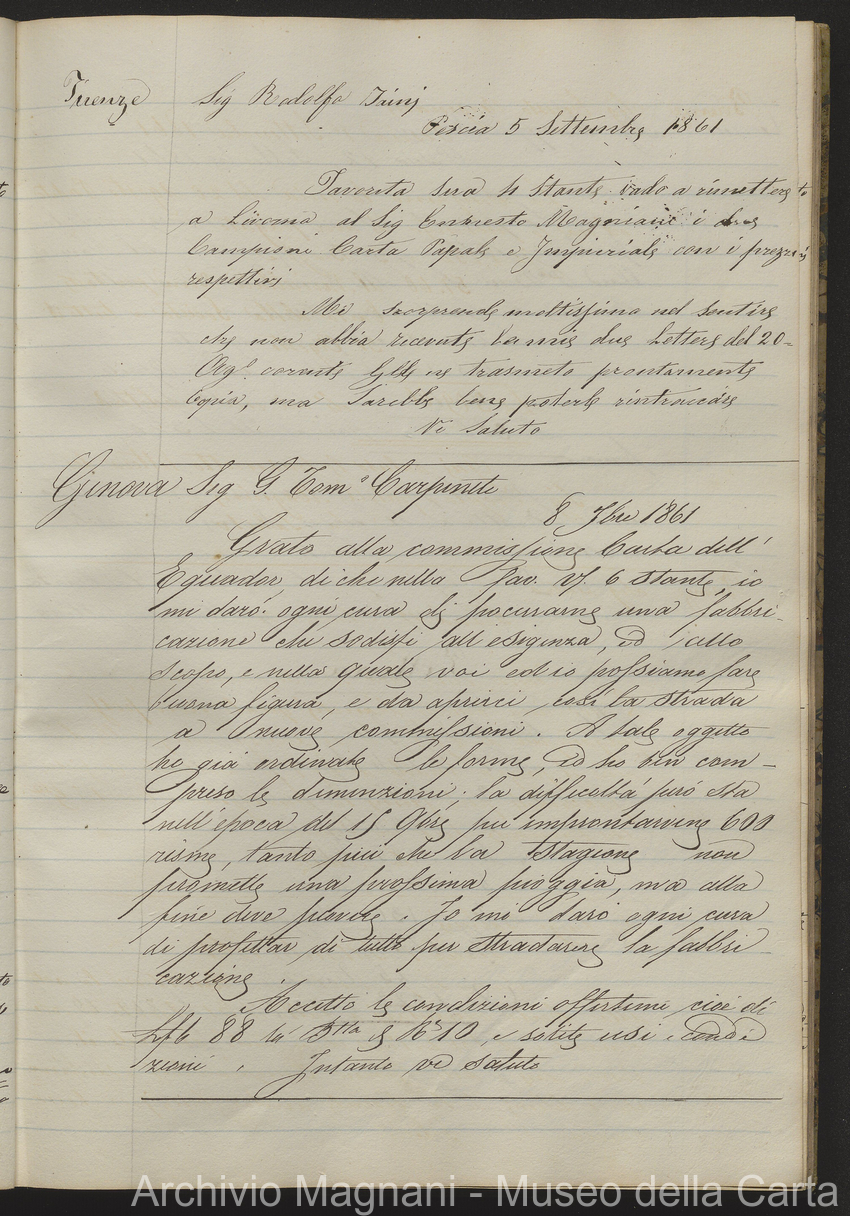 Firenze Sig Rodolfo
Pescia 5 Settembre 1861
Favorita sua 4 Stante vado a rimettere
a Livorno al Sig Ernesto Magniani i due
Campioni Carta Papale e Imperiale con i prezzi
respettivi
Mi sorprende moltissimo nel sentire
che non abbia ricevute le mie due Lettere del 20=
corrente ne trasmeto prontamente
Copia, ma Sarebbe bene poterle rintracciare
Vi Saluto
Genova Sig G. Tomo Carpineti
8 7bre 1861
Grato alla commissione Carta dell'
Equador, di che nella Fav. Vs. 6 stante, io
mi daró ogni cura di procurarne una fabbri-
cazione che sodisfi all' esigenza, ed allo
scopo, e nella quale voi ed io possiamo fare
buona figura, e da aprirci cosí la strada
a nuove commissioni. A tale oggetto
ho giá ordinate le forme, ed ho ben com-
preso le dimenzioni; la difficoltá peró sta
nell' época del 15 9bre per improntarvene 600
risme, tanto piú che la Stagione non
promette una prossima pioggia, ma alla
fine deve piovere. Io mi daró ogni cura
di profittar di tutto per stradarere la fabbri
cazione.
Accetto le condizioni offertemi cioé di
88 la e No 10, e solite usi e condi
zioni. Intanto vi saluto
Archivio Magnani - Museo della Carta